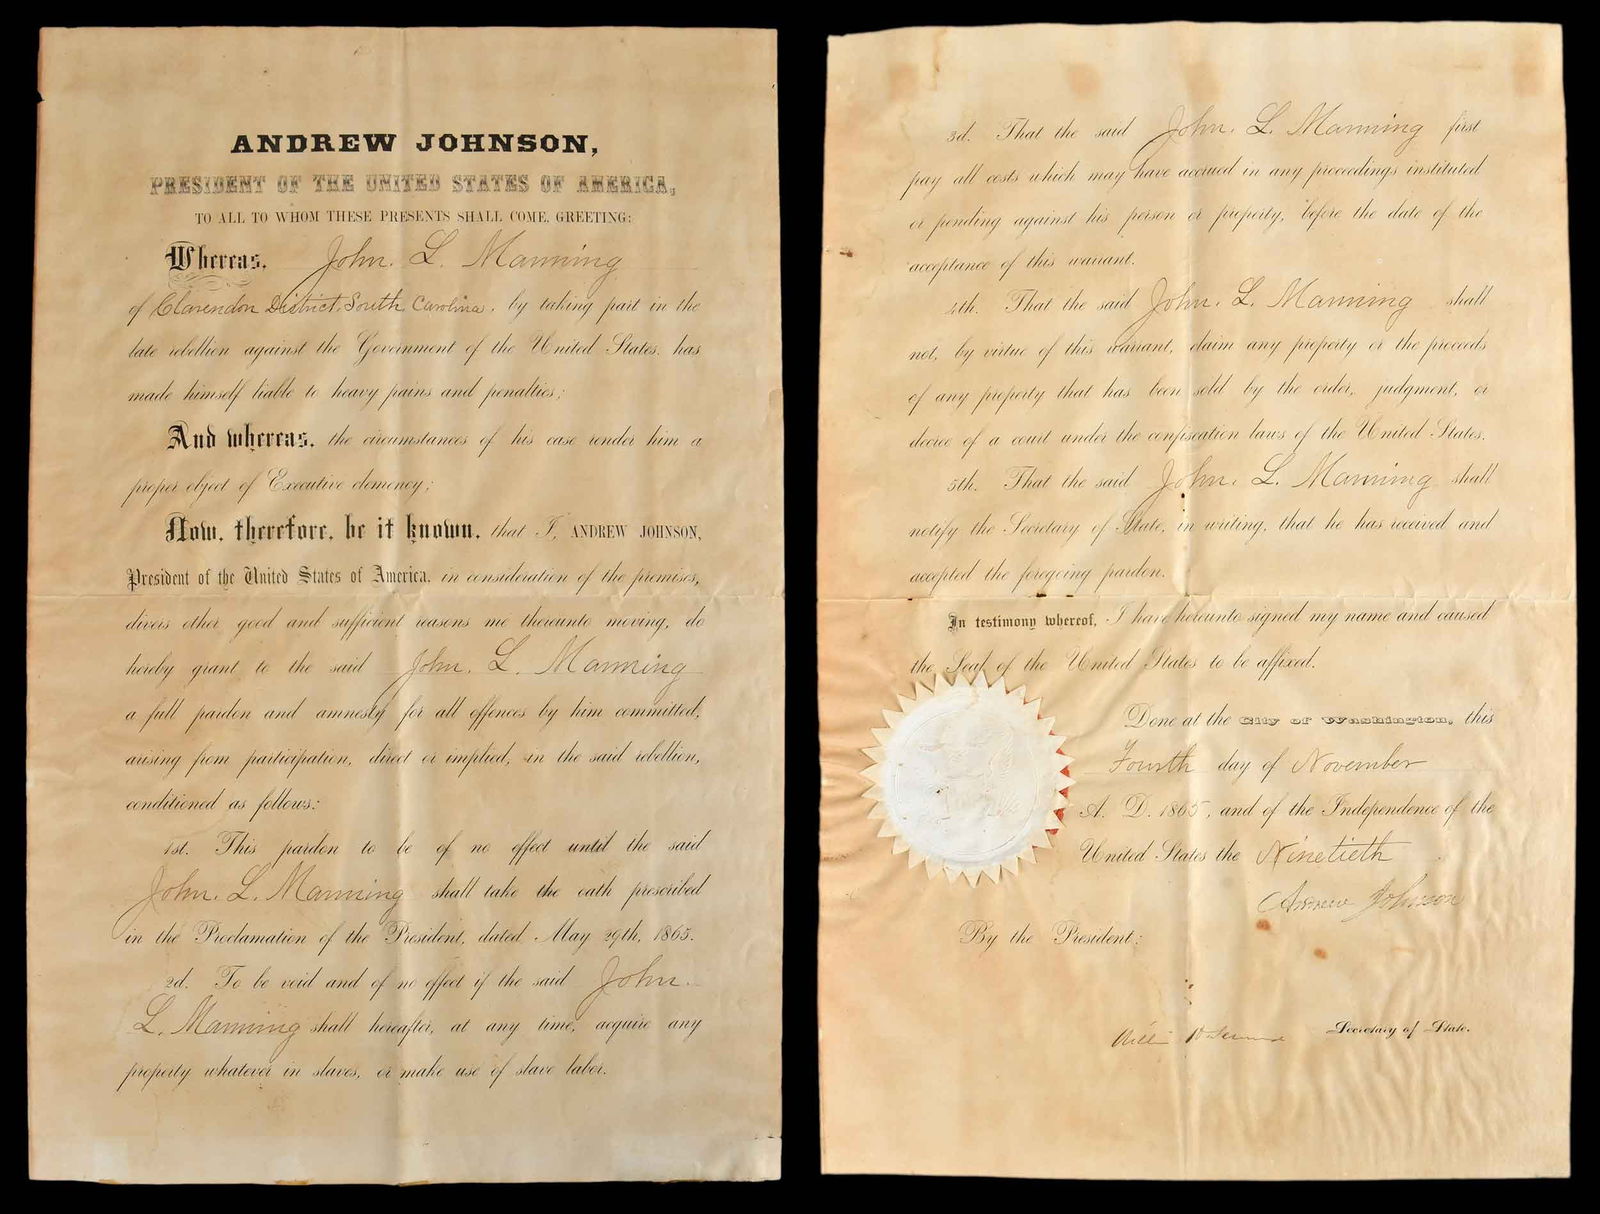 ANDREW JOHNSON,
PRESIDENT OF THE UNITED STATES OF AMERICA,
TO ALL TO WHOM THESE PRESENTS SHALL COME, GREETING:
Whereas, John. L. Manning
of Clarendon District, South Carolina, by taking part in the
late rebellion against the Government of the United States, has
made himself liable to heavy pains and penalties;
And whereas, the circumstances of his case render him a
proper object of Executive clemency;
Now, therefore, be it known, that I, ANDREW JOHNSON,
President of the United States of America, in consideration of the premises,
divers other good and sufficient reasons me thereunto moving, do
hereby grant to the said John. L. Manning
a full pardon and amnesty for all offences by him committed,
arising from participation, direct or implied, in the said rebellion,
conditioned as follows:
1st. This pardon to be of no effect until the said
John. L. Manning shall take the oath prescribed
in the Proclamation of the President, dated May 29th, 1865.
2d. To be void and of no effect if the said John.
L. Manning shall hereafter, at any time, acquire any
property whatever in slaves, or make use of slave labor.
3d. That the said John. L. Manning first
pay all costs which may have accrued in any proceedings instituted
or pending against his person or property, before the date of the
acceptance of this warrant.
4th. That the said John. L. Manning shall
not, by virtue of this warrant, claim any property or the proceeds
of any property that has been sold by the order, judgment, or
decree of a court under the confiscation laws of the United States.
5th. That the said John. L. Manning shall
notify the Secretary of State, in writing, that he has received and
accepted the foregoing pardon.
In testimony whereof, I have hereunto signed my name and caused
the Seal of the United States to be affixed.
Done at the City of Washington, this
Fourth day of November
A. D. 1865, and of the Independence of the
United States the Ninetieth
Andrew Johnson
By the President:
Secretary of State.